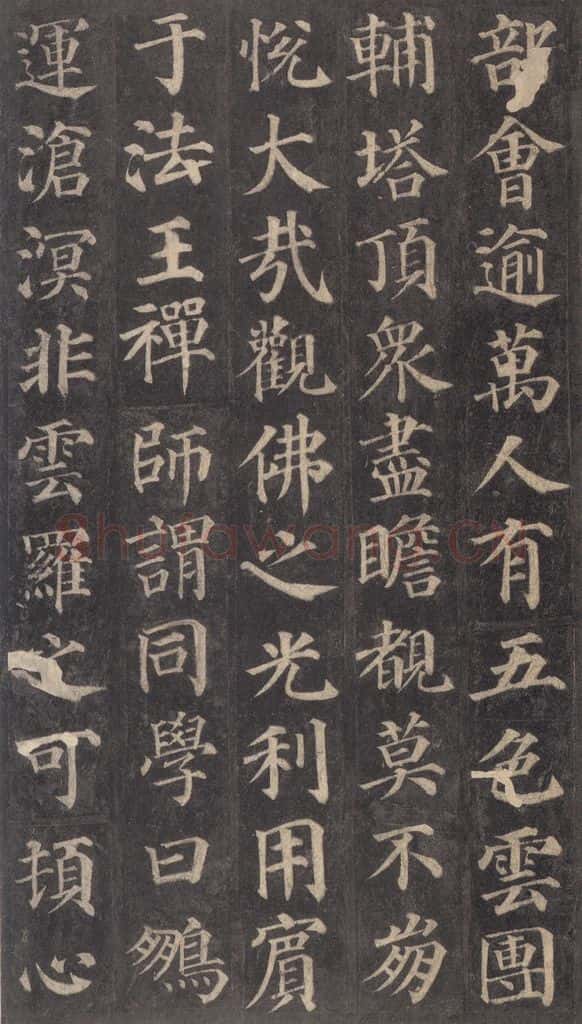 部會逾萬人有五色雲團
輔塔頂衆盡瞻覩莫不崩
悅大哉觀佛之光利用賓
于法王禪師謂同學曰鵬
運滄溟非雲羅之可頓心
Shufawang.cn